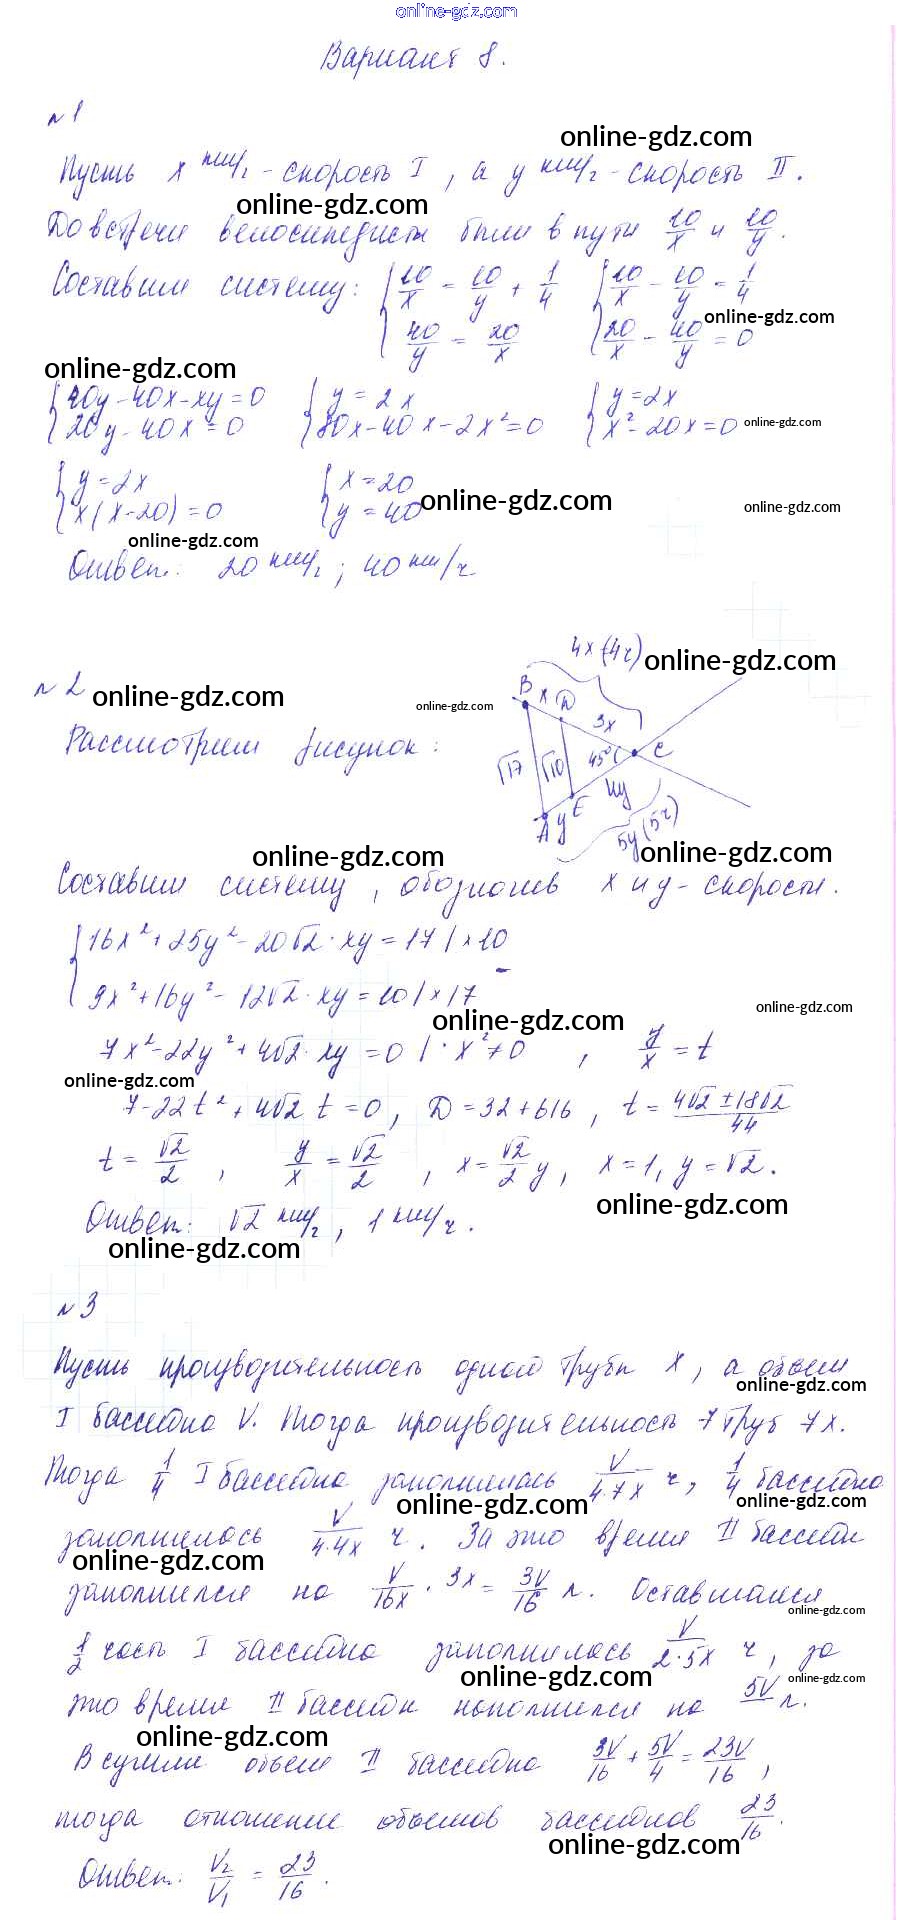 online-gdz.com
Вариант 8.
№1
online-gdz.com
Пусть x км/ч - скорость I, а y км/ч - скорость II.
online-gdz.com
До встречи велосипедисты были в пути 10/x и 10/y.
Составим систему: { 10/x = 10/y + 1/4 { 10/x - 10/y = 1/4
40/y = 20/x 20/x - 40/y = 0
online-gdz.com
online-gdz.com
{ 40y - 40x - xy = 0 { y = 2x { y = 2x
20y - 40x = 0 80x - 40x - 2x² = 0 x² - 20x = 0
online-gdz.com
{ y = 2x { x = 20
x(x-20) = 0 y = 40
online-gdz.com
online-gdz.com
online-gdz.com
Ответ: 20 км/ч; 40 км/ч
4x(4ч)
online-gdz.com
№2
online-gdz.com
online-gdz.com
B x D
3x
Рассмотрим рисунок:
√17 √10 45° C
4y
A y E
5y(5ч)
online-gdz.com
online-gdz.com
Составим систему, обозначив x и y - скорости.
{ 16x² + 25y² - 20√2·xy = 17 | ×10
9x² + 16y² - 12√2·xy = 10 | ×17
online-gdz.com
online-gdz.com
7x² - 22y² + 4√2·xy = 0 | : x² ≠ 0, y/x = t
online-gdz.com
7 - 22t² + 4√2 t = 0, D = 32 + 616, t = 4√2 ± 18√2/44
t = √2/2, y/x = √2/2, x = √2/2 y, x = 1, y = √2.
online-gdz.com
Ответ: √2 км/ч, 1 км/ч.
online-gdz.com
№3
Пусть производительность одной трубы x, а объем
online-gdz.com
I бассейна V. Тогда производительность 7 труб 7x.
Тогда 1/4 I бассейна заполнилась V/4·7x ч, 1/4 бассейна
online-gdz.com
online-gdz.com
заполнилась V/4·4x ч. За это время II бассейн
online-gdz.com
заполнился на V/16x · 3x = 3V/16 л. Оставшаяся
online-gdz.com
1/2 часть I бассейна заполнилась V/2·5x ч, за
online-gdz.com
online-gdz.com
это время II бассейн наполнился на 5V л.
online-gdz.com
В сумме объем II бассейна 3V/16 + 5V/4 = 23V/16,
тогда отношение объемов бассейнов 23/16.
online-gdz.com
Ответ: V₂/V₁ = 23/16.